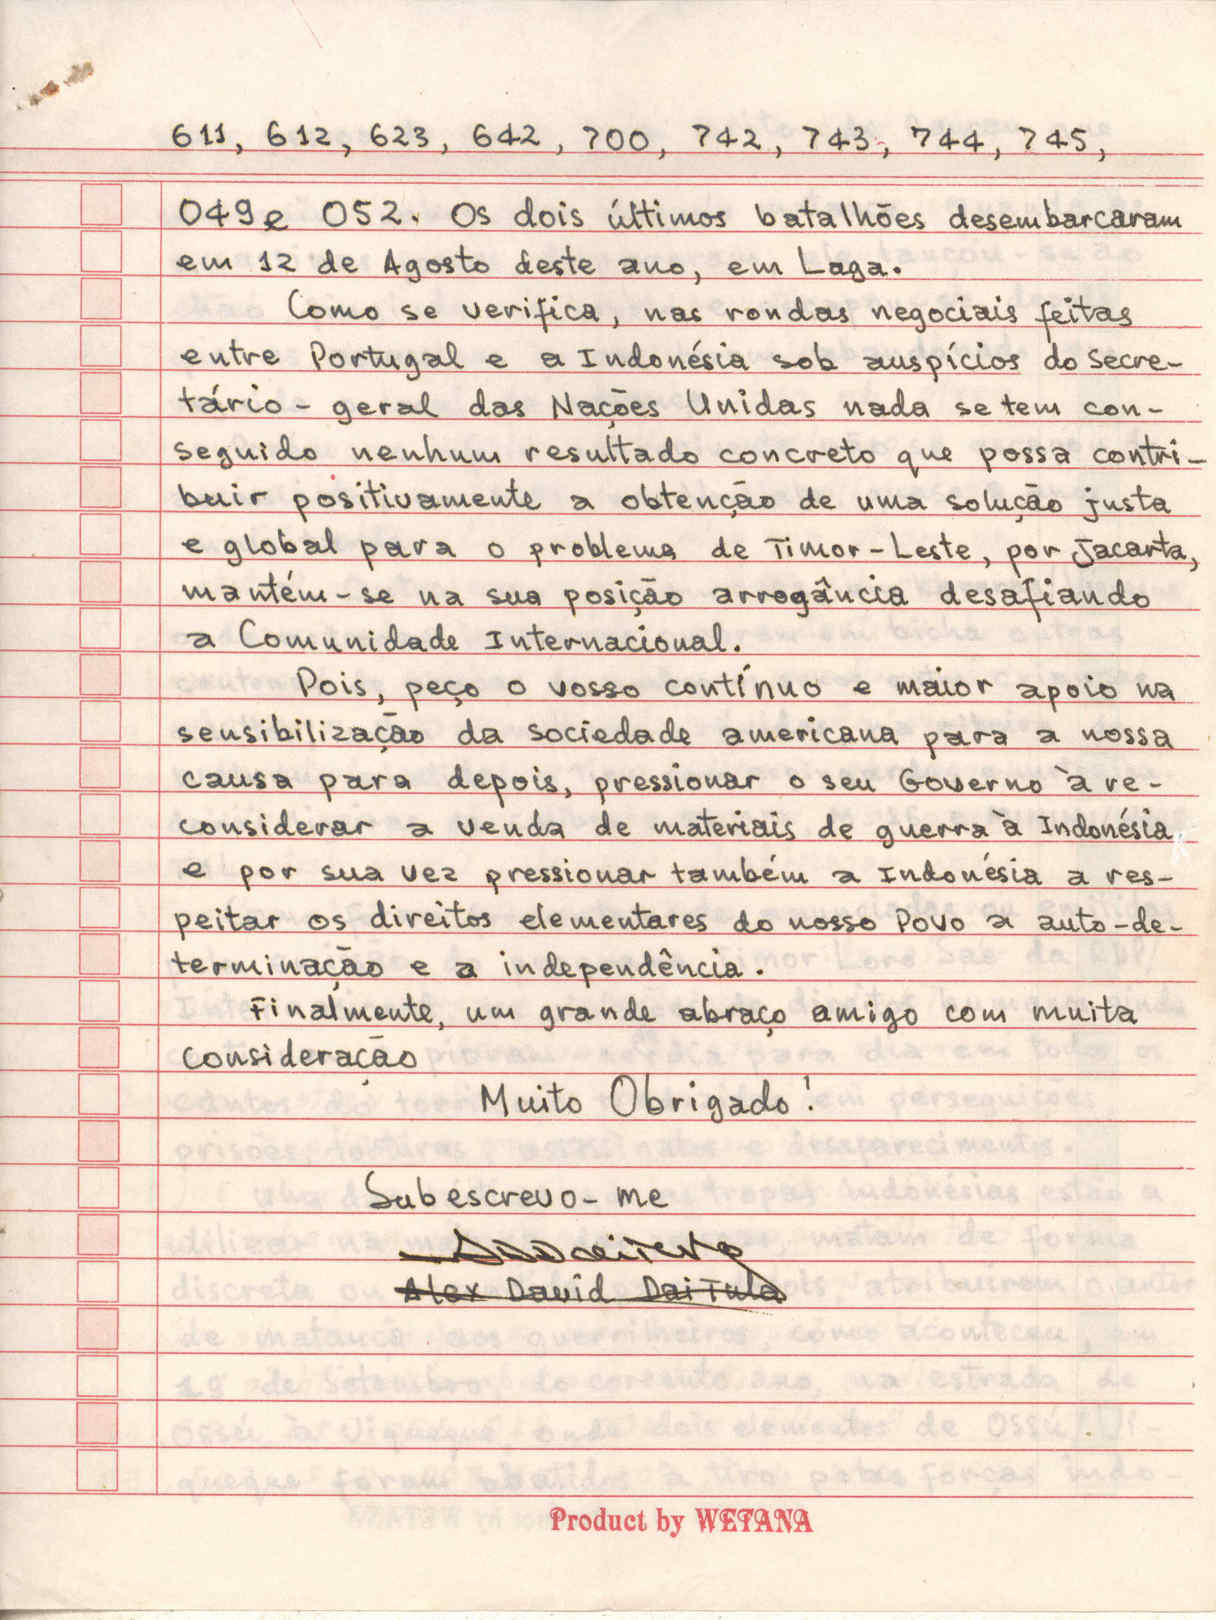 611, 612, 623, 642, 700, 742, 743, 744, 745,
049 e 052. Os dois últimos batalhões desembarcaram
em 12 de Agosto deste ano, em Laga.
Como se verifica, nas rondas negociais feitas
entre Portugal e a Indonésia sob auspícios do Secre-
tário-geral das Nações Unidas nada se tem con-
seguido nenhum resultado concreto que possa contri-
buir positivamente a obtenção de uma solução justa
e global para o problema de Timor-Leste, por Jacarta,
mantém-se na sua posição arrogância desafiando
a Comunidade Internacional.
Pois, peço o vosso contínuo e maior apoio na
sensibilização da sociedade americana para a nossa
causa para depois, pressionar o seu Governo à re-
considerar a venda de materiais de guerra à Indonésia
e por sua vez pressionar também a Indonésia a res-
peitar os direitos elementares do nosso Povo a auto-de-
terminação e a independência.
Finalmente, um grande abraço amigo com muita
consideração
Muito Obrigado!
Subescrevo-me
Alex David DaiTula
Product by WETANA